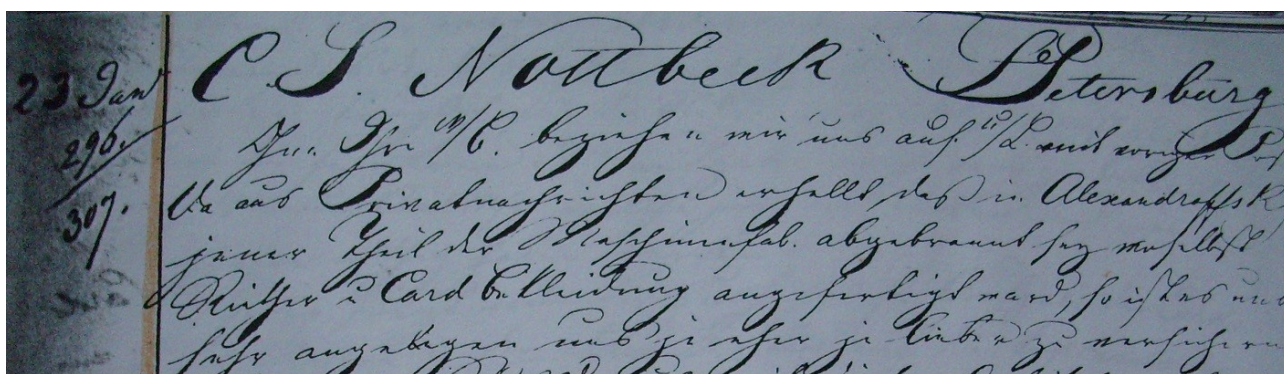 23 Jan C. S. Nottbeck Petersburg
296. beziehen wir uns auf mit voriger
307. Da aus Privatnachrichten erhellt daß in Alexandroffsk
jener Theil der Maschinenfab. abgebrannt sey woselbst
u Card Bekleidung angefertigt ward, so ist es uns
sehr angelegen uns je eher je lieber zu versichern